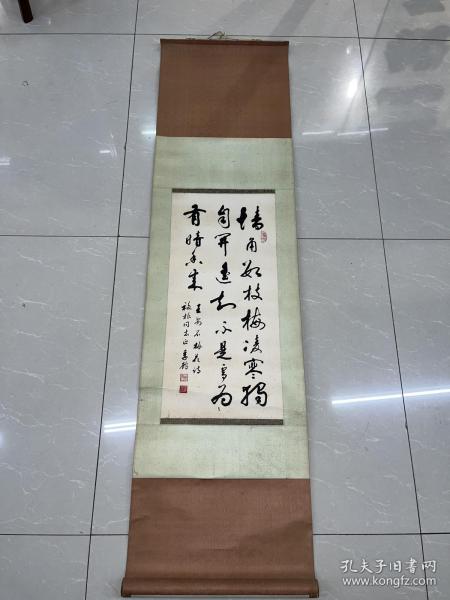 墙角数枝梅凌寒独
自开遥知不是雪为
有暗香来
王安石梅花诗
同志正
孔夫子旧书网
www.kongfz.com